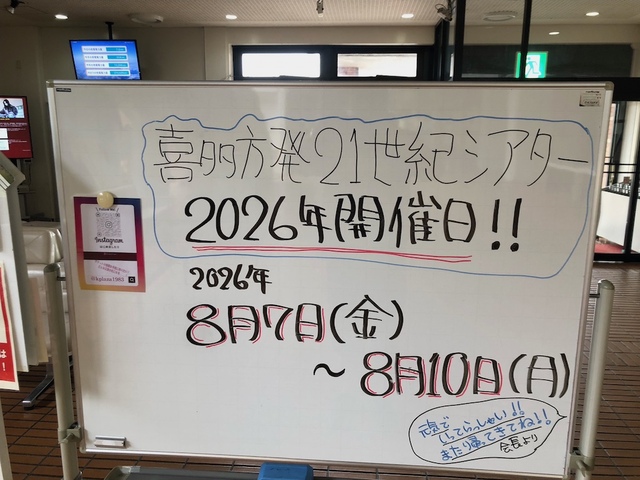 喜多方発21世紀シアター
2026年開催日!!
2026年
8月7日(金)
～8月10日(月)
Instagram
元気で
いってらっしゃい!!
また帰ってきてね!!
会長より